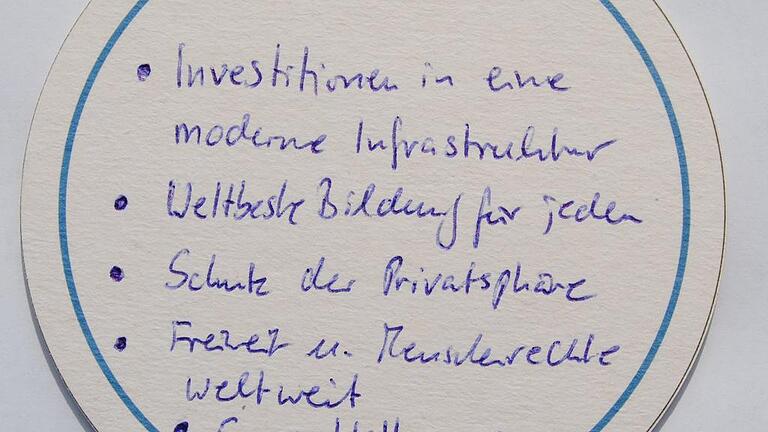 • Investitionen in eine
moderne Infrastruktur
• Weltbeste Bildung für jeden
• Schutz der Privatsphäre
• Freiheit u. Menschenrechte
weltweit